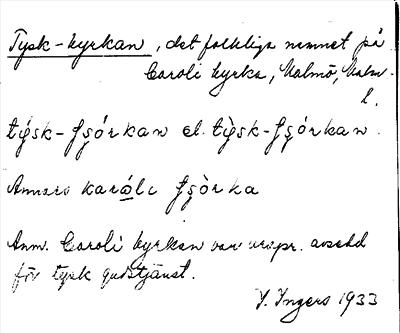 Tysk-kyrkan, det folkliga namnet på
Caroli kyrka, Malmö, Malm.
l.
týsk-fşórkan el. tỳsk-fşórkan.
Annars karáli fşòrka
Anm. Caroli kyrkan var urspr. avsedd
för tysk gudstjänst.
I. Ingers 1933